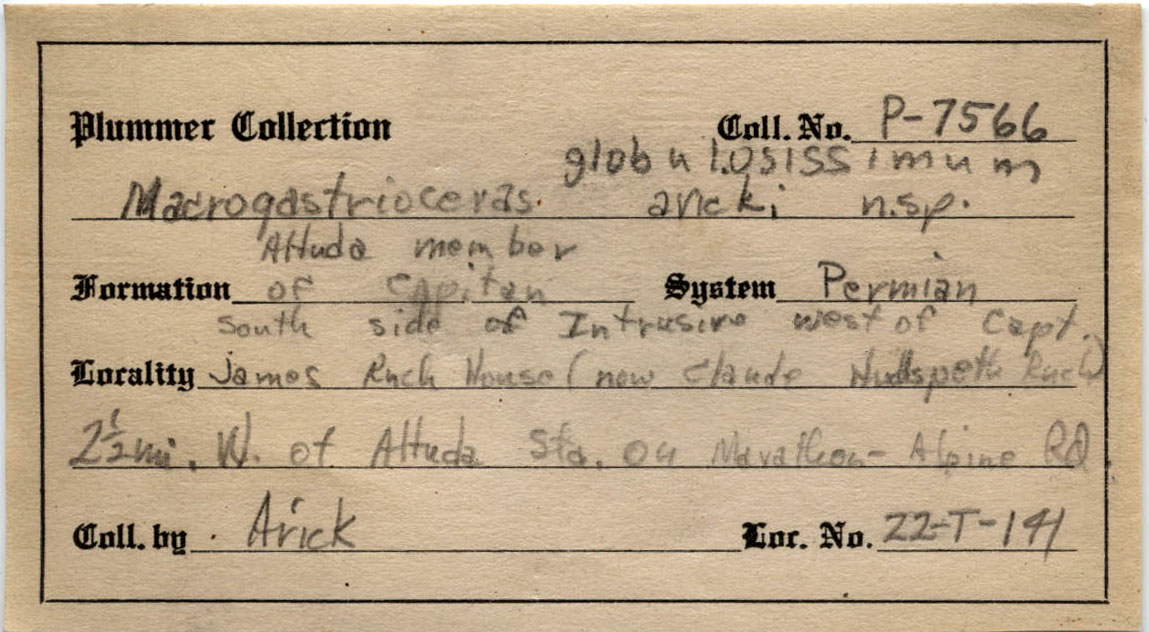 Plummer Collection Coll. No. P-7566
globulosissimum
Macrogastrioceras aricki n.sp.
Altuda member
Formation of Capitan System Permian
South side of Intrusive west of Capt.
Locality James Rnch House (now Claude Hudspeth Rnch)
2½ mi. W. of Altuda Sta. on Marathon-Alpine RD.
Coll. by Arick Loc. No. 22-T-141